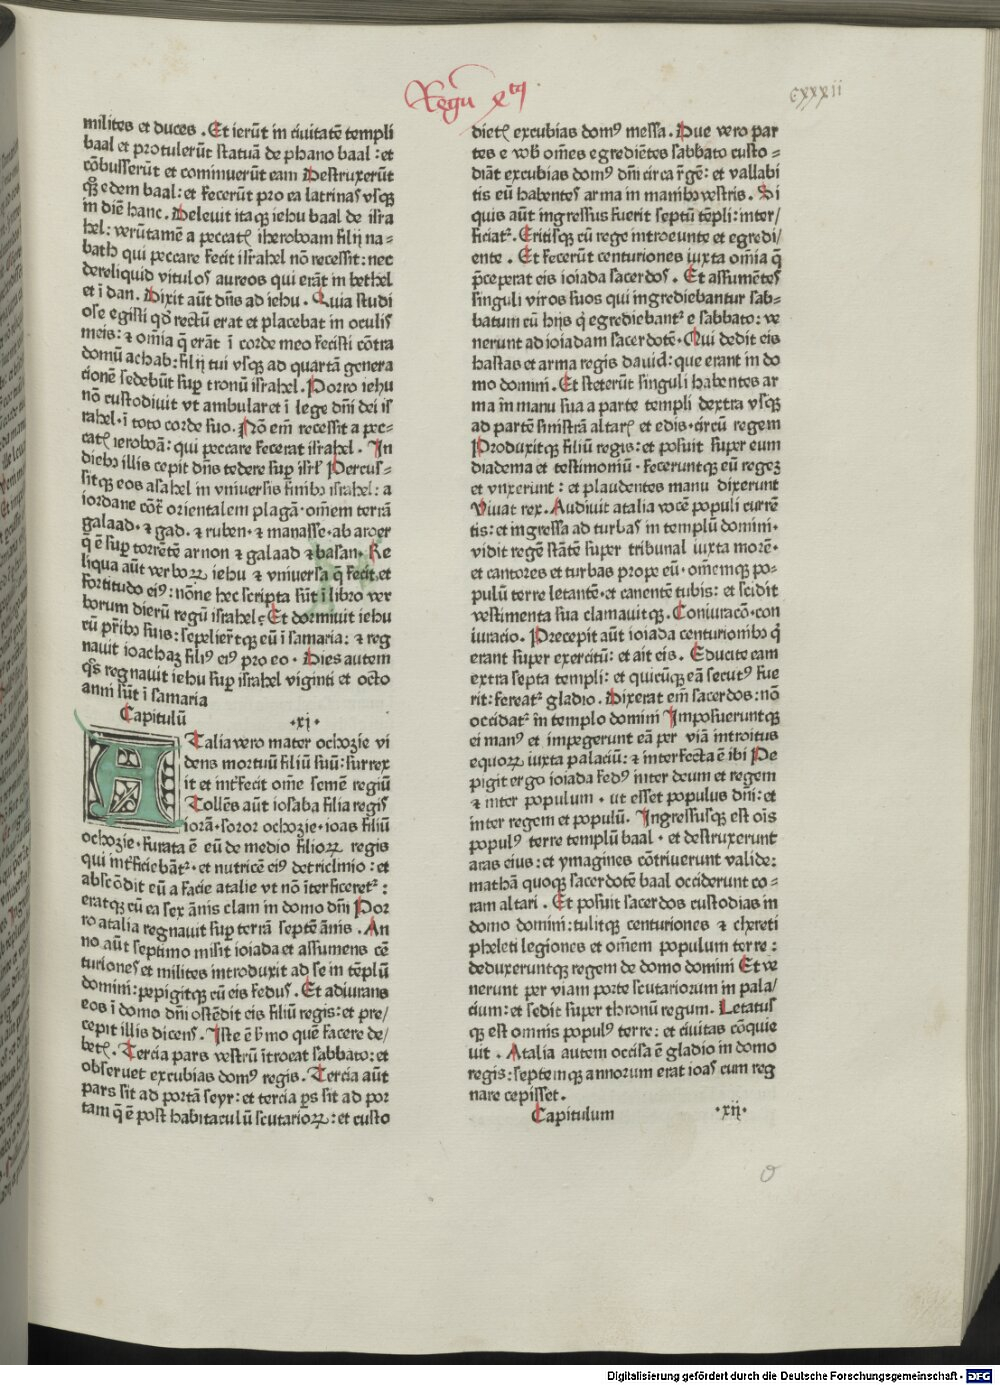 Regū 4tꝯ
cxxxii
milites et duces . Et ierūt in ciuitatē templi
baal et protulerūt statuā de phano baal : et
cōbusserūt et cominuerūt eam Destruxerūt
qꝫ edem baal: et fecerūt pro ea latrinas vsqꝫ
in diē hanc. Deleuit itaqꝫ iehu baal de isra
hel: verūtamē a peccatꝭ iheroboam filij na-
bath qui peccare fecit israhel nō recessit: nec
dereliquid vitulos aureos qui erāt in bethel
et ī dan. Dixit aūt dn̄s ad iehu . Quia studi
ose egisti qd̄ rectū erat et placebat in oculis
meis: ⁊ om̄ia q̄ erāt ī corde meo fecisti cōtra
domū achab: filij tui vsqꝫ ad quartā genera
tionē sedebūt suꝑ tronū israhel. Porro iehu
nō custodiuit vt ambularet ī lege dn̄i dei is
rahel · ī toto corde suo. Nō em̄ recessit a pec-
catꝭ ieroboā: qui peccare fecerat israhel. In
diebꝫ illis cepit dn̄s tedere suꝑ isrl̄ Percus-
sitqꝫ eos asahel in vniuersis finibꝫ israhel: a
iordane cōt̄ orientalem plagā · om̄em terrā
galaad · ⁊ gad. ⁊ ruben · ⁊ manasse · ab aroer
q̄ ē suꝑ torrētē arnon ⁊ galaad ⁊ basan. Re
liqua aūt verboꝝ iehu ⁊ vniuersa q̄ fecit, et
fortitudo eiꝰ: nōne hec scripta sūt ī libro ver
borum dierū regū israhel. Et dormiuit iehu
cū pr̄ibꝫ suis: sepelier̄tqꝫ eū ī samaria: ⁊ reg
nauit ioachaz filiꝰ eiꝰ pro eo · Dies autem
qͦs regnauit iehu suꝑ israhel viginti et octo
anni sūt ī samaria
Capitulū ·xj·
ATalia vero mater ochozie vi
dens mortuū filiū suū: surrex
it et int̄fecit om̄e semē regiū
Tollēs aūt iosaba filia regis
iorā · soror ochozie · ioas filiū
ochozie · furata ē eū de medio filioꝝ regis
qui int̄ficiebāt᷑ · et nutricē eiꝰ de triclinio : et
abscōdit eū a facie atalie vt nō īterficeret᷑ :
eratqꝫ cū ea sex ānis clam in domo dn̄i Por
ro atalia regnauit suꝑ terrā septē ānis. An
no aūt septimo misit ioiada et assumens cē
turiones et milites introduxit ad se in tēplū
domini: pepigitqꝫ cū eis fedus . Et adiurans
eos ī domo dn̄i ostēdit eis filiū regis: et pre/
cepit illis dicens. Iste ē ẜmo quē facere de/
betꝭ. Tercia pars vestrū ītroeat sabbato: et
obseruet excubias domꝰ regis. Tercia aūt
pars sit ad portā seyr: et tercia ꝑs sit ad por
tam q̄ ē post habitaculū scutarioꝝ: et custo
dietꝭ excubias domꝰ messa. Due vero par
tes e vobꝭ om̄es egrediētes sabbato custo-
diāt excubias domꝰ dn̄i circa r̄gē: et vallabi
tis eū habentes arma in manibꝫ vestris. Si
quis aūt ingressus fuerit septū tēpli: inter/
ficiat᷑. Eritisqꝫ cū rege introeunte et egredi/
ente . Et fecerūt centuriones iuxta om̄ia q̄
p̄ceperat eis ioiada sacerdos . Et assumētes
singuli viros suos qui ingrediebantur sab-
batum cū hijs q̄ egrediebant᷑ e sabbato: ve
nerunt ad ioiadam sacerdotē · Qui dedit eis
hastas et arma regis dauid: que erant in do
mo domini. Et steterūt singuli habentes ar
ma in manu sua a parte templi dextra vsqꝫ
ad partē sinistrā altarꝭ et edis · circū regem
Produxitqꝫ filiū regis: et posuit super eum
diadema et testimoniū · feceruntqꝫ eū regeꝫ
et vnxerunt : et plaudentes manu dixerunt
Viuat rex. Audiuit atalia vocē populi currē
tis: et ingressa ad turbas in templū domini·
vidit regē stātē super tribunal iuxta morē·
et cantores et turbas prope eū · omēmqꝫ po-
pulū terre letantē · et canentē tubis: et scidit
vestimenta sua clamauitqꝫ. Coniuracō · con
iuracio. Precepit aūt ioiada centurionibꝫ q̄
erant super exercitū: et ait eis . Educite eam
extra septa templi: et quicūqꝫ eā secutꝰ fue
rit: fereat᷑ gladio. Dixerat em̄ sacerdos: nō
occidat᷑ in templo domini Imposueruntqꝫ
ei manꝰ et impegerunt eā per viā introitus
equoꝝ iuxta palaciū: ⁊ interfecta ē ibi Pe
pigit ergo ioiada fedꝰ inter deum et regem
⁊ inter populum · ut esset populus dn̄i: et
inter regem et populū. Ingressusqꝫ est oīs
populꝰ terre templū baal · et destruxerunt
aras eius: et ymagines cōtriuerunt valide:
mathā quoqꝫ sacerdotē baal occiderunt co-
ram altari . Et posuit sacerdos custodias in
domo domini: tulitqꝫ centuriones ⁊ chereti
pheleti legiones et om̄em populum terre :
deduxeruntqꝫ regem de domo domini Et ve
nerunt per viam porte scutariorum in pala/
cium: et sedit super thronū regum. Letatus
qꝫ est omnis populꝰ terre: et ciuitas cōquie
uit . Atalia autem occisa ē gladio in domo
regis: septemqꝫ annorum erat ioas cum reg
nare cepisset.
Capitulum ·xij·
Digitalisierung gefördert durch die Deutsche Forschungsgemeinschaft - DFG